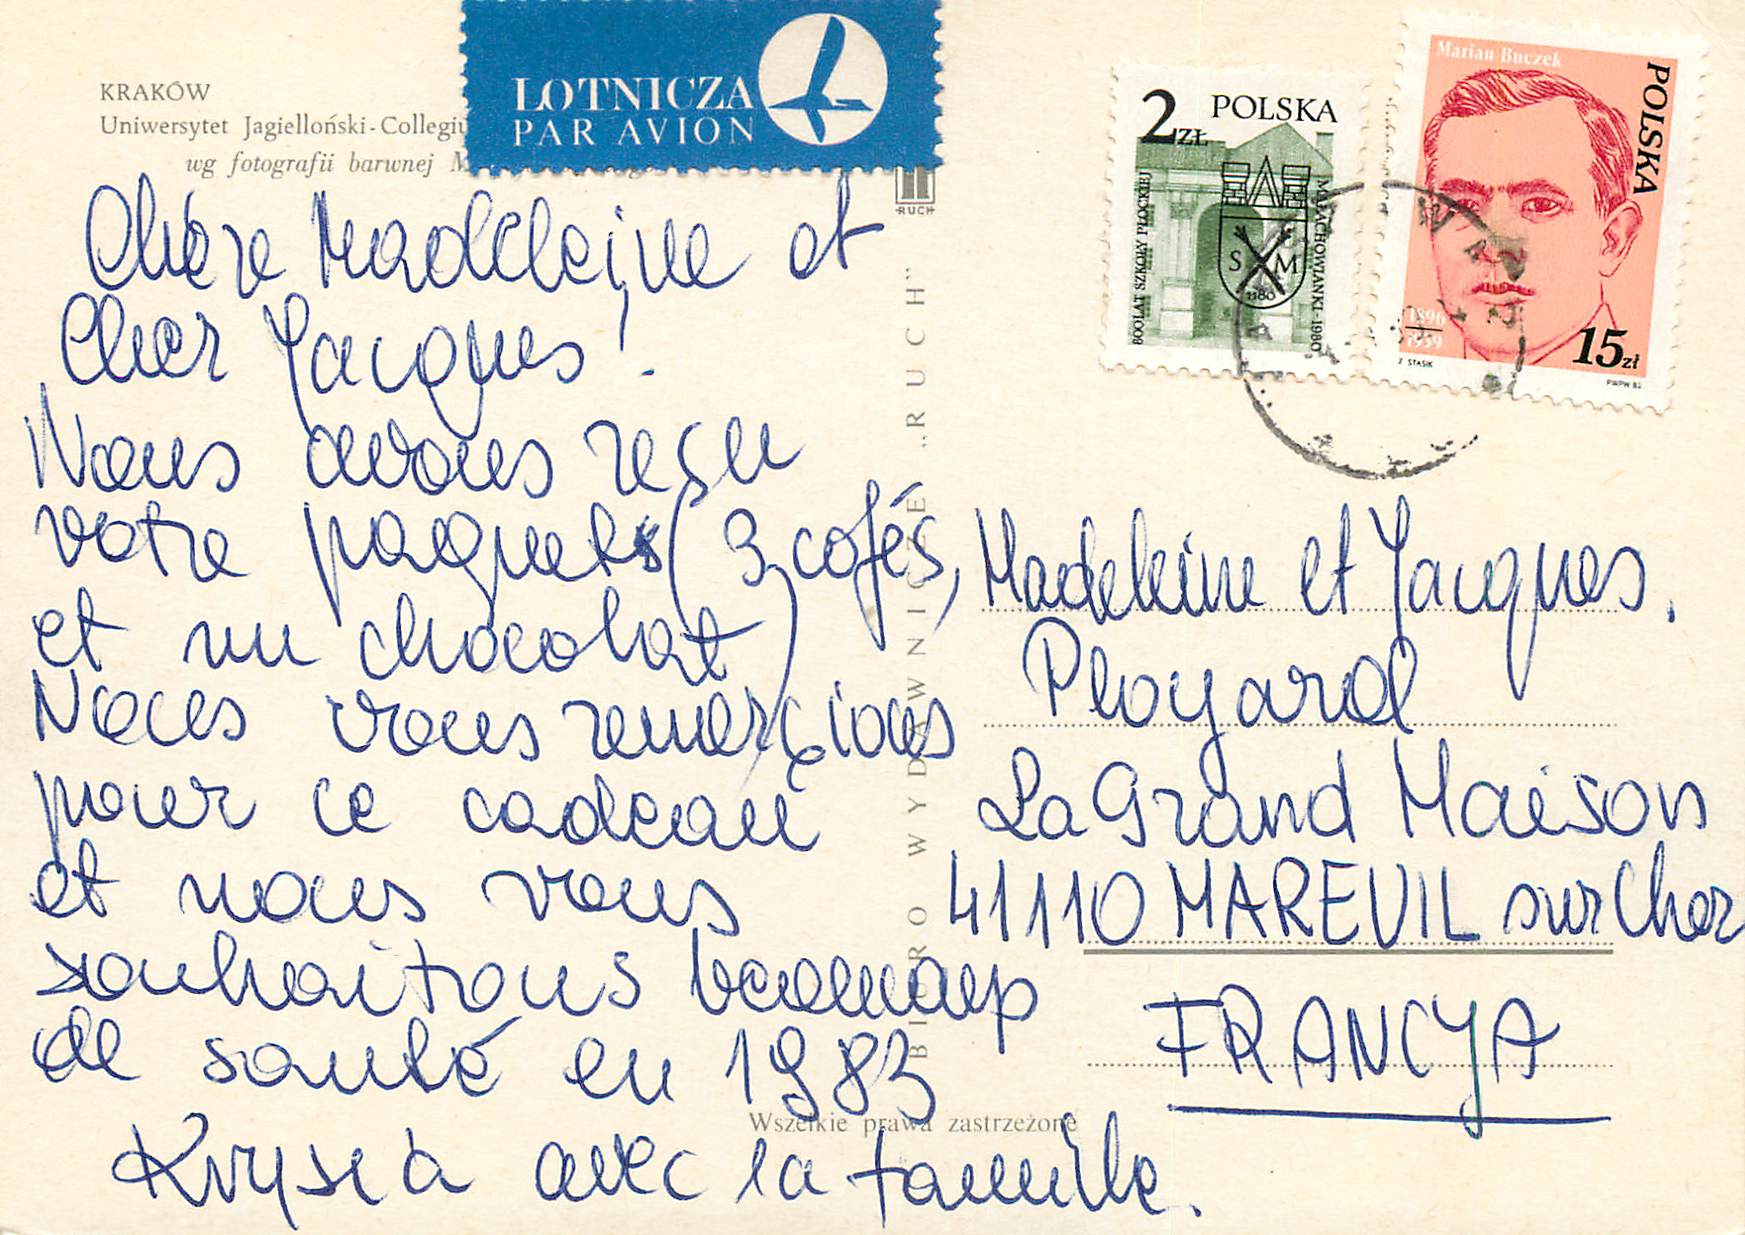 KRAKÓW
Uniwersytet Jagielloński-Collegiu
wg fotografii barwnej M
LOTNICZA
PAR AVION
RUCH
2 ZŁ POLSKA
800 LAT SZKOŁY PŁOCKIEJ
MAŁACHOWIANKI-1980
S M
1180
Marian Buczek
POLSKA
1896
1939
15 zł
Z STASIK
PWPW 82
Chère Madeleine et
Cher Jacques!
Nous avons reçu
votre paquets (3 cafés,
et un chocolat)
Nous vous remerçions
pour ce cadeau
et nous vous
souhaitons beaucoup
de santé en 1983
Krysia avec la famille.
BIURO WYDAWNICZE „RUCH”
Wszelkie prawa zastrzeżone
Madeleine et Jacques.
Ployard
La Grand Maison
41110 MAREUIL sur Cher
FRANCYA